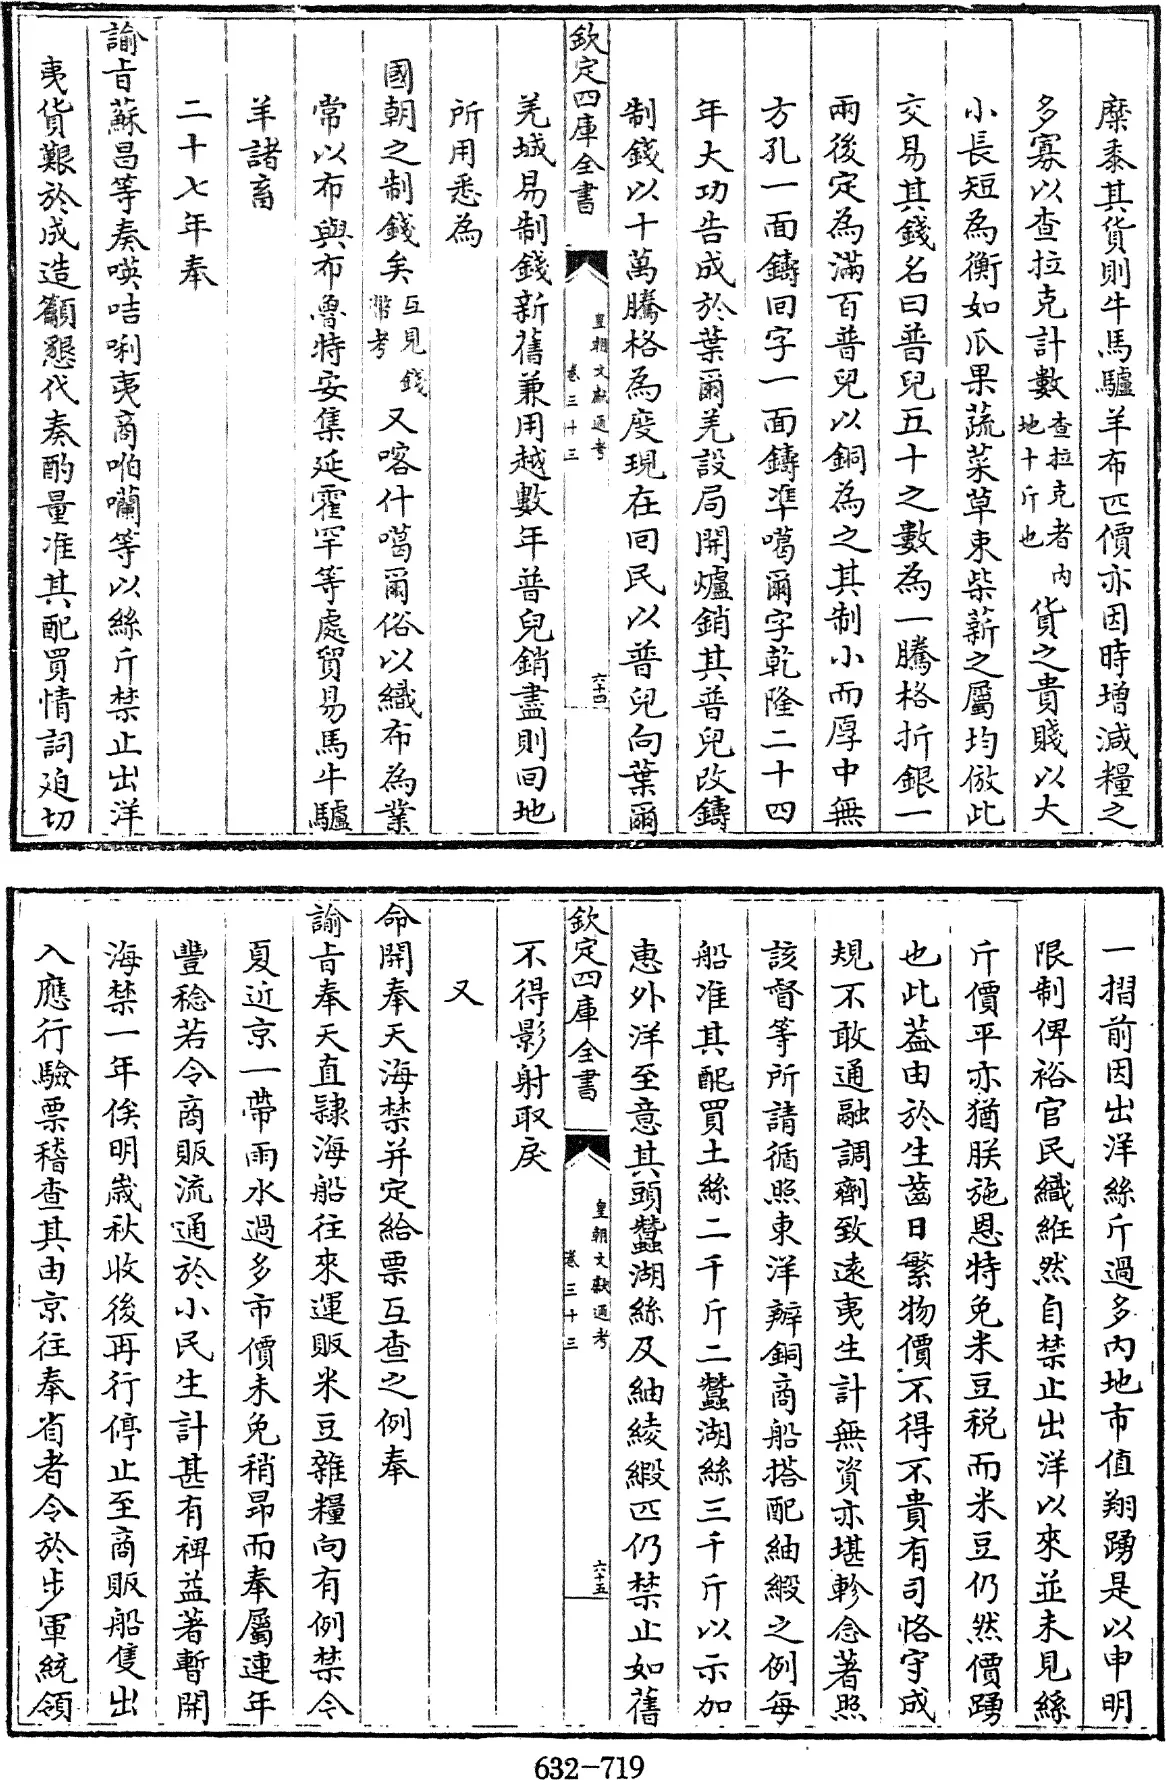 糜黍其貨則牛馬驢羊布匹價亦因時增減糧之
多寡以查拉克計數查拉克者内地十斤也貨之貴賤以大
小長短為衡如瓜果蔬菜草束柴薪之屬均倣此
交易其錢名曰普兒五十之數為一騰格折銀一
兩後定為滿百普兒以銅為之其制小而厚中無
方孔一面鑄囘字一面鑄準噶爾字乾隆二十四
年大功告成於葉爾羌設局開爐銷其普兒改鑄
制錢以十萬騰格為度現在囘民以普兒向葉爾
欽定四庫全書
皇朝文獻通考
卷三十三
六十四
羌城易制錢新舊兼用越數年普兒銷盡則囘地
所用悉為
國朝之制錢矣互見錢幣考又喀什噶爾俗以織布為業
常以布與布魯特安集延霍罕等處貿易馬牛驢
羊諸畜
二十七年奉
諭㫖蘇昌等奏㗲咭唎夷商啪囒等以絲斤禁止出洋
夷貨艱於成造籲懇代奏酌量准其配買情詞廹切
一摺前因出洋絲斤過多内地市值翔踴是以申明
限制俾裕官民織絍然自禁止出洋以來並未見絲
斤價平亦猶朕施恩特免米豆税而米豆仍然價踴
也此葢由於生齒日繁物價不得不貴有司恪守成
規不敢通融調劑致逺夷生計無資亦堪軫念著照
該督等所請循照東洋辦銅商船搭配紬緞之例每
船准其配買土絲二千斤二蠶湖絲三千斤以示加
惠外洋至意其頭蠶湖絲及紬綾緞匹仍禁止如舊
欽定四庫全書
皇朝文獻通考
卷三十三
六十五
不得影射取戾
又
命開奉天海禁并定給票互查之例奉
諭㫖奉天直隸海船往來運販米豆雜糧向有例禁今
夏近京一帶雨水過多市價未免稍昂而奉屬連年
豐稔若令商販流通於小民生計甚有裨益著暫開
海禁一年俟明歲秋收後再行停止至商販船隻出
入應行驗票稽查其由京往奉省者令於步軍統領
632-719